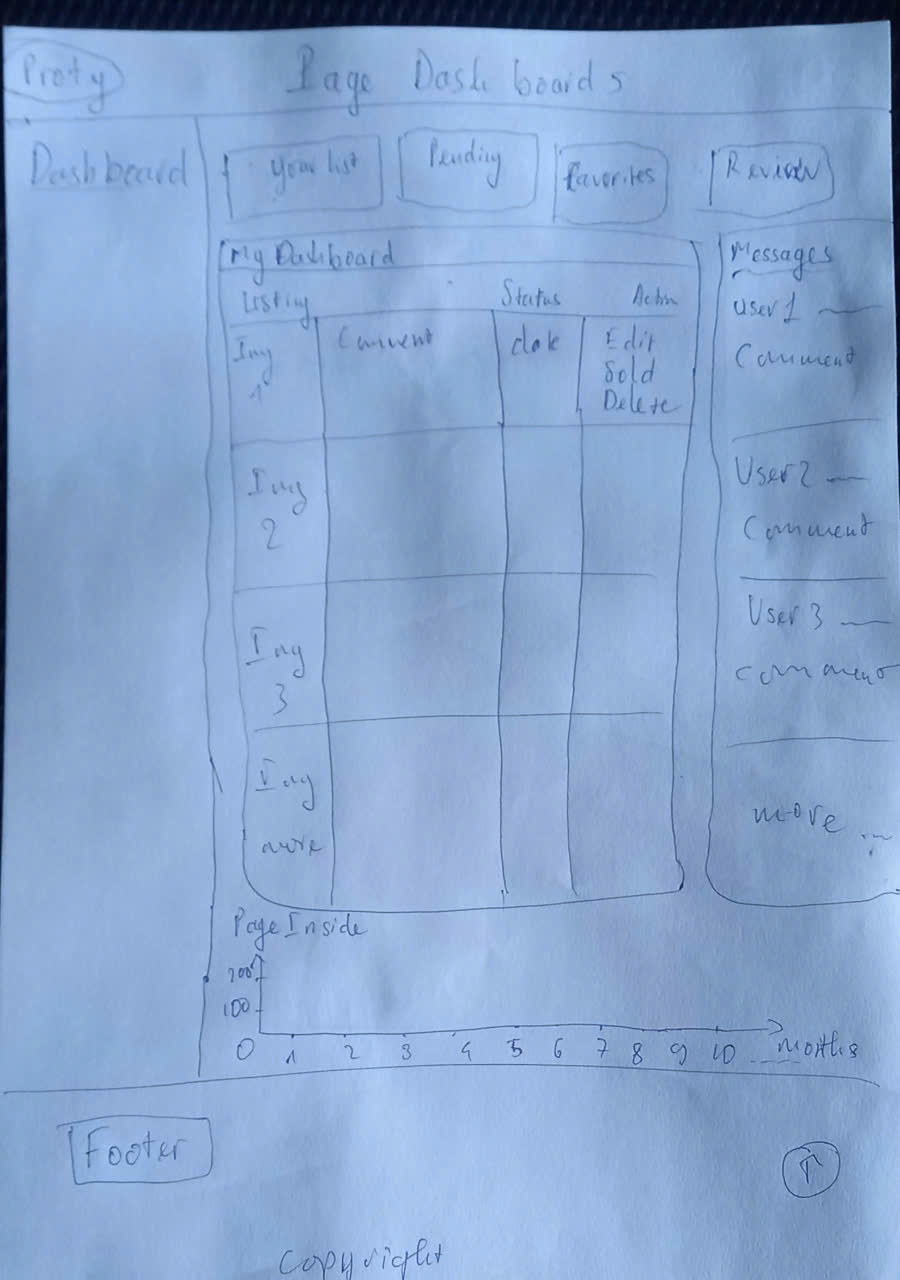 Proty
Page Dashboards
Dashboard
Your list
Pending
Favorites
Review
My Dashboard
Listing Status Action
Img 1
Comment
Edit
Sold
Delete
Img 2
Img 3
Img more
Messages
User 1
Comment
User 2
Comment
User 3
Comment
more ...
Page Inside
200
100
0 1 2 3 4 5 6 7 8 9 10 ... months
Footer
↑
Copyright